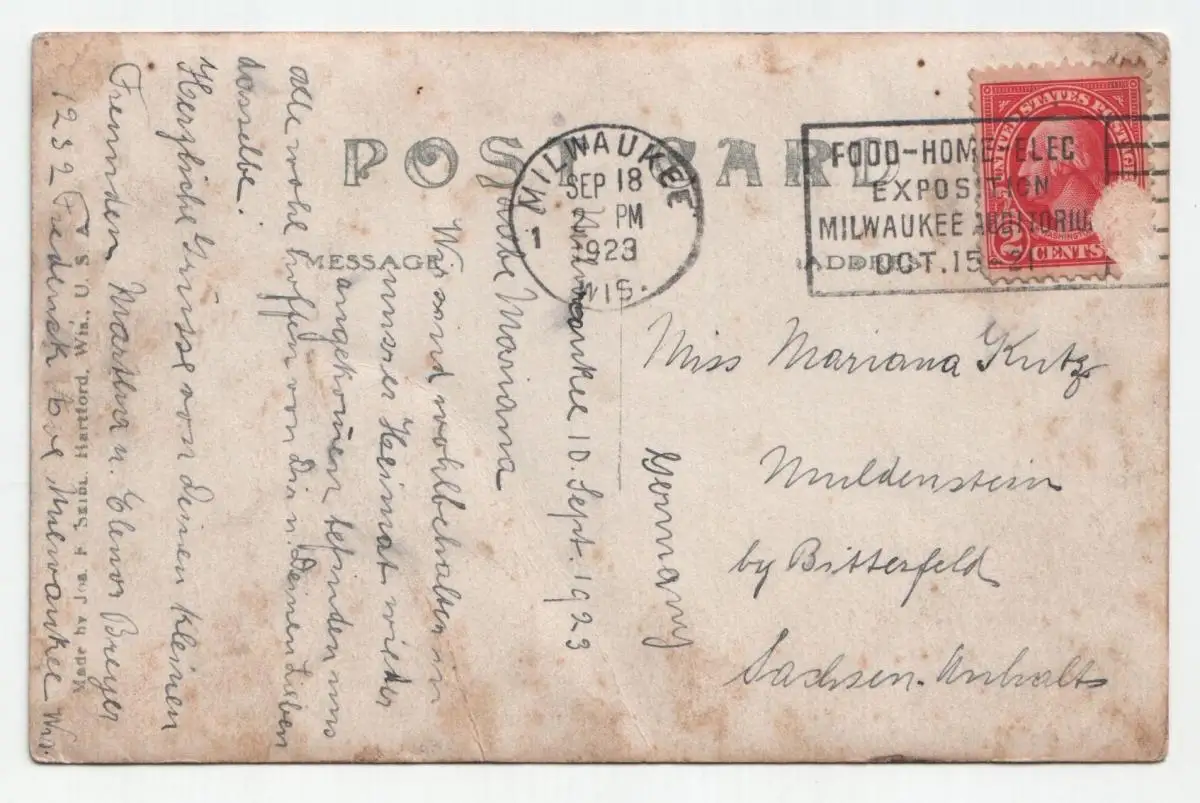 POST CARD
MESSAGE
ADDRESS
MILWAUKEE
SEP 18
2 PM
1923
1
WIS.
FOOD-HOME-ELEC
EXPOSITION
MILWAUKEE AUDITORIUM
OCT. 15-21
UNITED STATES POSTAGE
WASHINGTON
2 CENTS 2
Milwaukee 10. Sept. 1923
Liebe Mariana
Wir sind wohlbehalten in
unsrer Heimat wieder
angekom̄en befinden uns
alle wohl hoffen von Dir u. Deinen Lieben
dasselbe.
Herzliche Grüsse von Deinen kleinen
Freunden Martha u. Elenor Breyer
1232 Frederick Ave Milwaukee Wis.
Made by Jos. F. Seibl. Hartford, Wis., U. S. A.
Miss Mariana Kutz
Muldenstein
by Bitterfeld
Sachsen-Anhalt
Germany